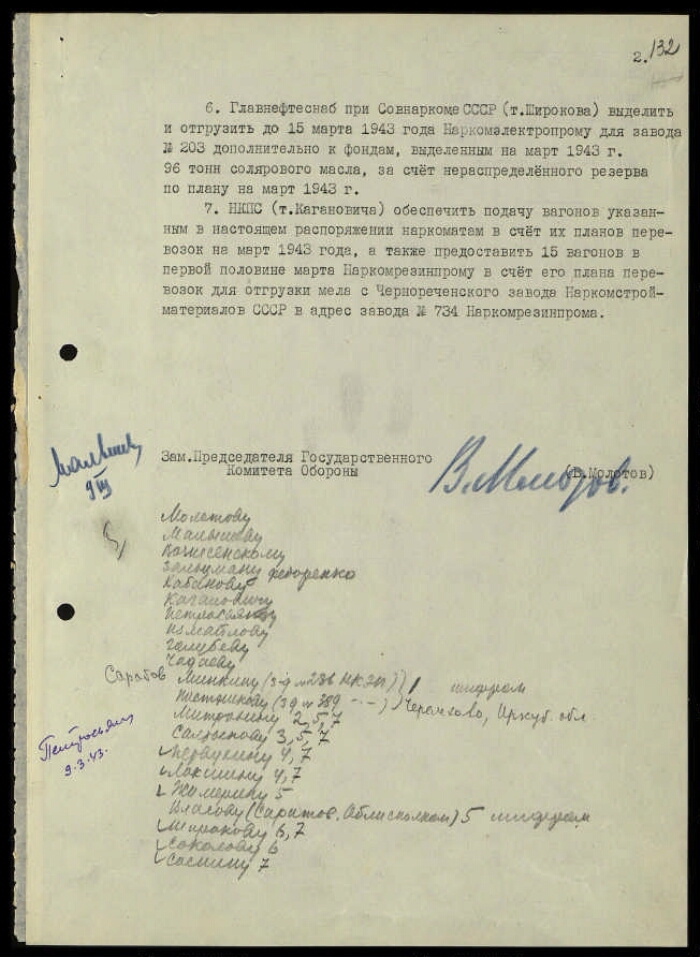 2. 132
6. Главнефтеснаб при Совнаркоме СССР (т.Широкова) выделить
и отгрузить до 15 марта 1943 года Наркомэлектропрому для завода
№ 203 дополнительно к фондам, выделенным на март 1943 г.
96 тонн солярового масла, за счёт нераспределённого резерва
по плану на март 1943 г.
7. НКПС (т.Кагановича) обеспечить подачу вагонов указан-
ным в настоящем распоряжении наркоматам в счёт их планов пере-
возок на март 1943 года, а также предоставить 15 вагонов в
первой половине марта Наркомрезинпрому в счёт его плана пере-
возок для отгрузки мела с Чернореченского завода Наркомстрой-
материалов СССР в адрес завода № 734 Наркомрезинпрома.
Малышев
9 III
Зам.Председателя Государственного
Комитета Обороны
В. Молотов.
(В.Молотов)
Молотову
Малышеву
Вознесенскому
Зальцману Федоренко
Кабанову
Кагановичу
Петросьянцу
Измайлову
Голубеву
Чадаеву
Саратов Минкину (з-д № 236 НКЭП) 1 шифром
Постникову (з-д № 389 -"-) Черемхово, Иркут. обл.
Митрохину 2,5,7
3,5,7
Петросьянц
9.3.43.
Первухину 4,7
Локшину 4,7
Жимерину 5
Власову (Саратов. Облисполком) 5 шифром
Широкову 6,7
Соколову 6
Соснину 7